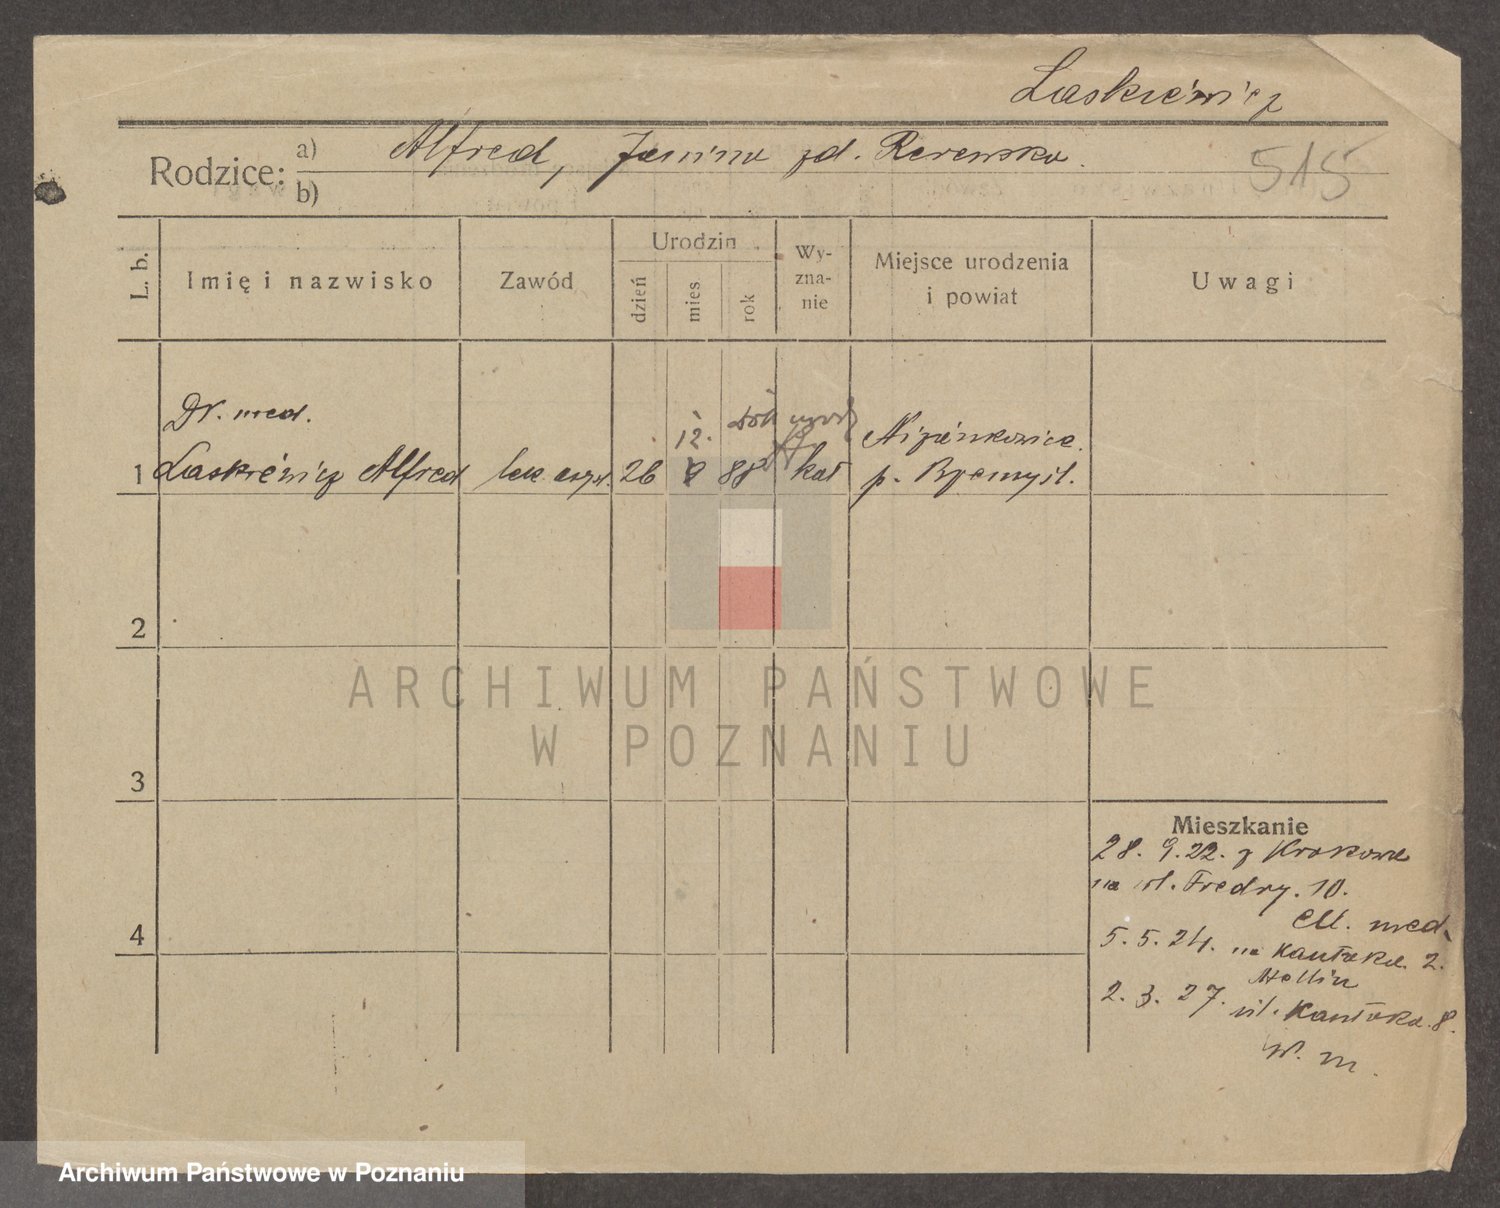 Laskiewicz
Rodzice:
a) Alfred, Janina zd.
b)
515
L. b.
Imię i nazwisko
Zawód
Urodzin
dzień
mies
rok
Wy-
zna-
nie
Miejsce urodzenia
i powiat
Uwagi
Dr. med.
12.
1 Laskiewicz Alfred
lek. 26 88 kat
Niżankowice
p. Przemyśl.
2
3
4
Mieszkanie
28. 9. 22. z Krakowa
na ul. Fredry. 10.
med.
5. 5. 24. na Kantaka. 2.
2. 3. 27. ul. Kantaka. 8.
W. m.
ARCHIWUM PAŃSTWOWE
W POZNANIU
Archiwum Państwowe w Poznaniu